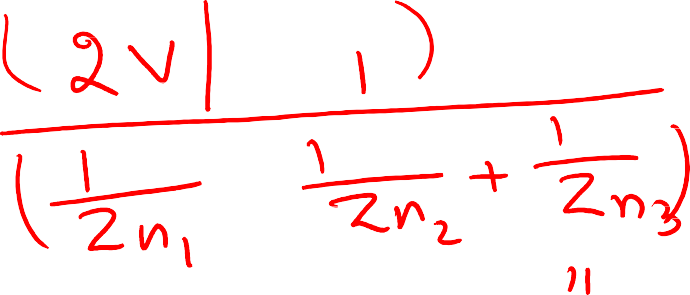 (2v| 1)
(1/2n₁ 1/2n₂ + 1/2n₃)
"